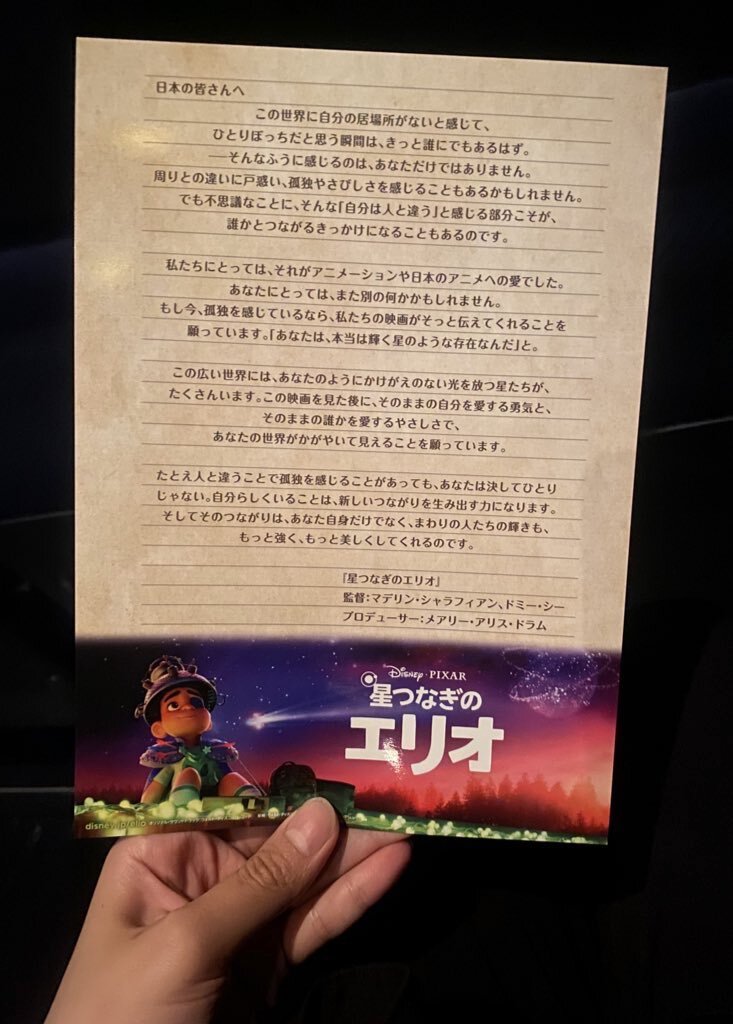 日本の皆さんへ
この世界に自分の居場所がないと感じて、
ひとりぼっちだと思う瞬間は、きっと誰にでもあるはず。
──そんなふうに感じるのは、あなただけではありません。
周りとの違いに戸惑い、孤独やさびしさを感じることもあるかもしれません。
でも不思議なことに、そんな「自分は人と違う」と感じる部分こそが、
誰かとつながるきっかけになることもあるのです。
私たちにとっては、それがアニメーションや日本のアニメへの愛でした。
あなたにとっては、また別の何かかもしれません。
もし今、孤独を感じているなら、私たちの映画がそっと伝えてくれることを
願っています。「あなたは、本当は輝く星のような存在なんだ」と。
この広い世界には、あなたのようにかけがえのない光を放つ星たちが、
たくさんいます。この映画を見た後に、そのままの自分を愛する勇気と、
そのままの誰かを愛するやさしさで、
あなたの世界がかがやいて見えることを願っています。
たとえ人と違うことで孤独を感じることがあっても、あなたは決してひとり
じゃない。自分らしくいることは、新しいつながりを生み出す力になります。
そしてそのつながりは、あなた自身だけでなく、まわりの人たちの輝きも、
もっと強く、もっと美しくしてくれるのです。
『星つなぎのエリオ』
監督：マデリン・シャラフィアン、ドミー・シー
プロデューサー：メアリー・アリス・ドラム
Disney・PIXAR
星つなぎの
エリオ
disney.jp/elio